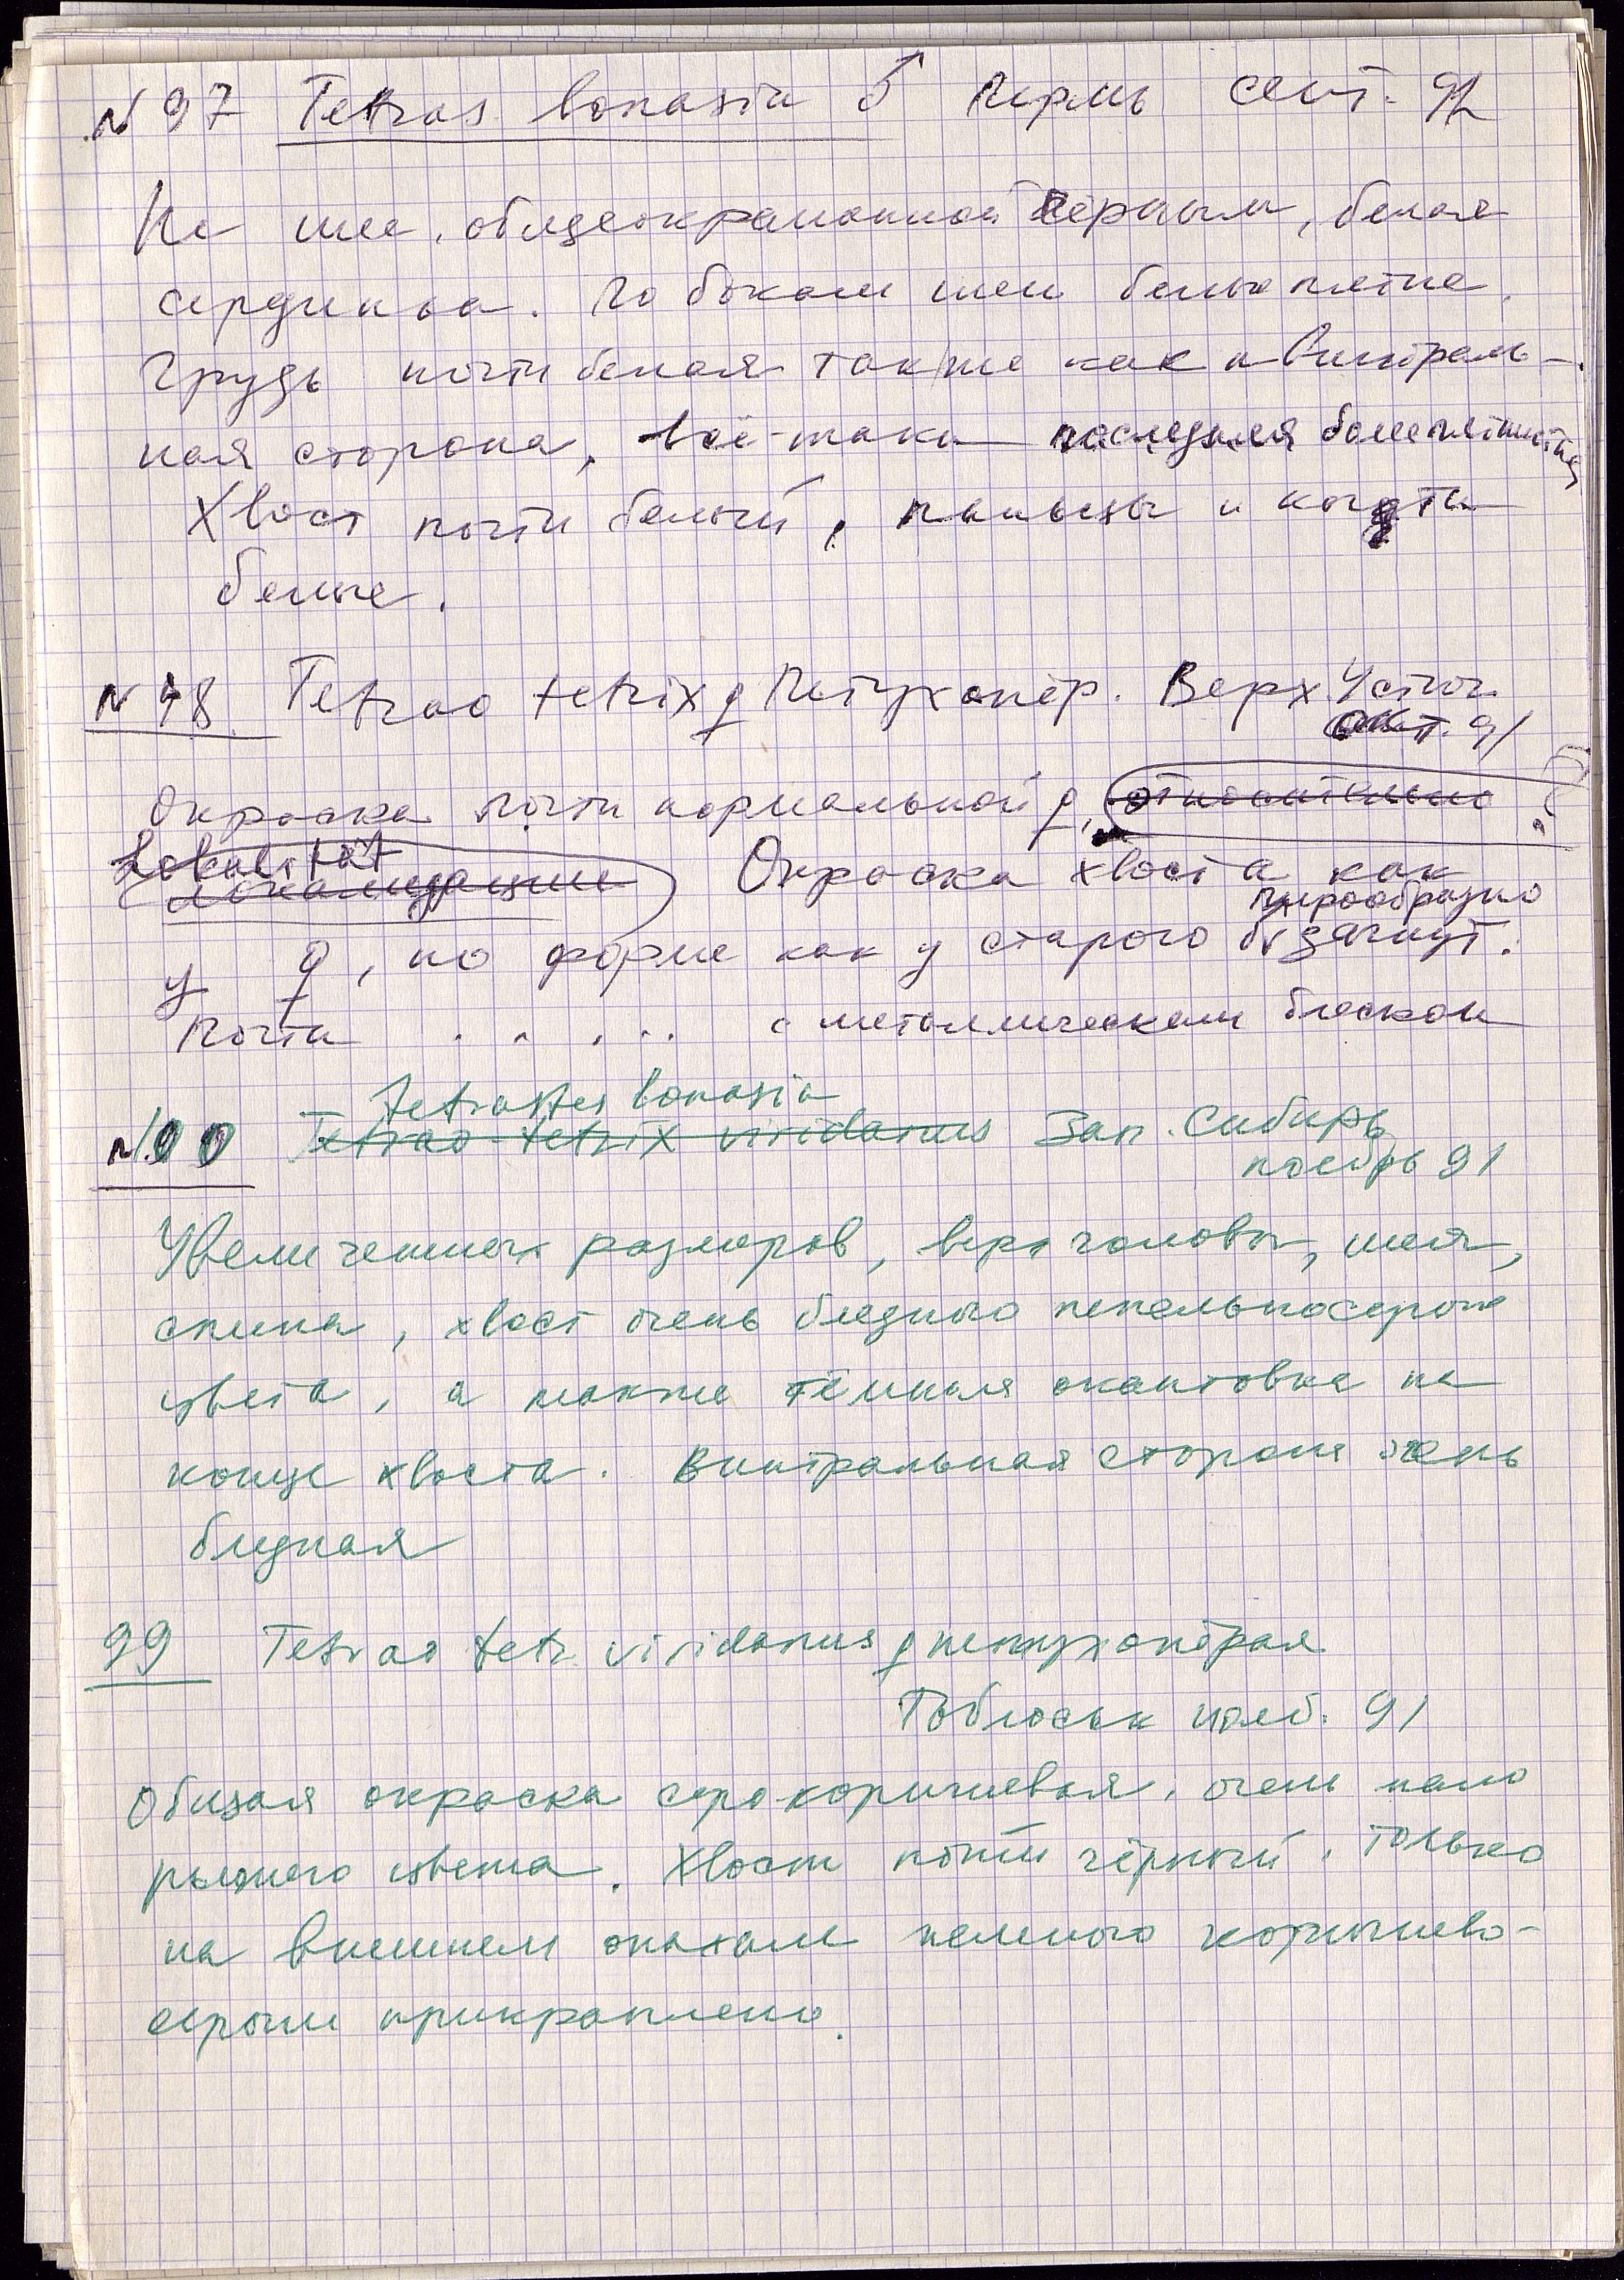 N 97 Tetras bonasia ♂ Пермь сент. 92
На шее, общеокрашенной чёрным, белая
середина. По бокам шеи белые пятна.
Грудь почти белая также как и винтраль-
ная сторона, всё-таки последняя более пятниста
Хвост почти белый, пальцы и когти
белые.
N 98 Tetrao tetrix ♀ Петухопёр. Верх. Устюг
окт. 91
Окраска почти нормальной ♀, относительно
Lokalität
локализации Окраска хвоста как
лирообразно
у ♀, но форме как у старого ♂ загнут.
Почти . . . . . с металлическим блеском
Tetrastes bonasia
N 90 Tetrao tetrix viridanus Зап. Сибирь
ноябрь 91
Увеличенных размеров, верх головы, шея,
спина, хвост очень бледного пепельносерого
цвета, а также тёмная окантовка на
конце хвоста. Винтральная сторона очень
бледная
99 Tetrao tetr. viridanus ♀ петухопёрая
Тоблоськ нояб. 91
Общая окраска серокоричневая, очень мало
рыжего цвета. Хвост почти чёрный, только
на внешнем опахале немного коричнево-
серым прикраплено.